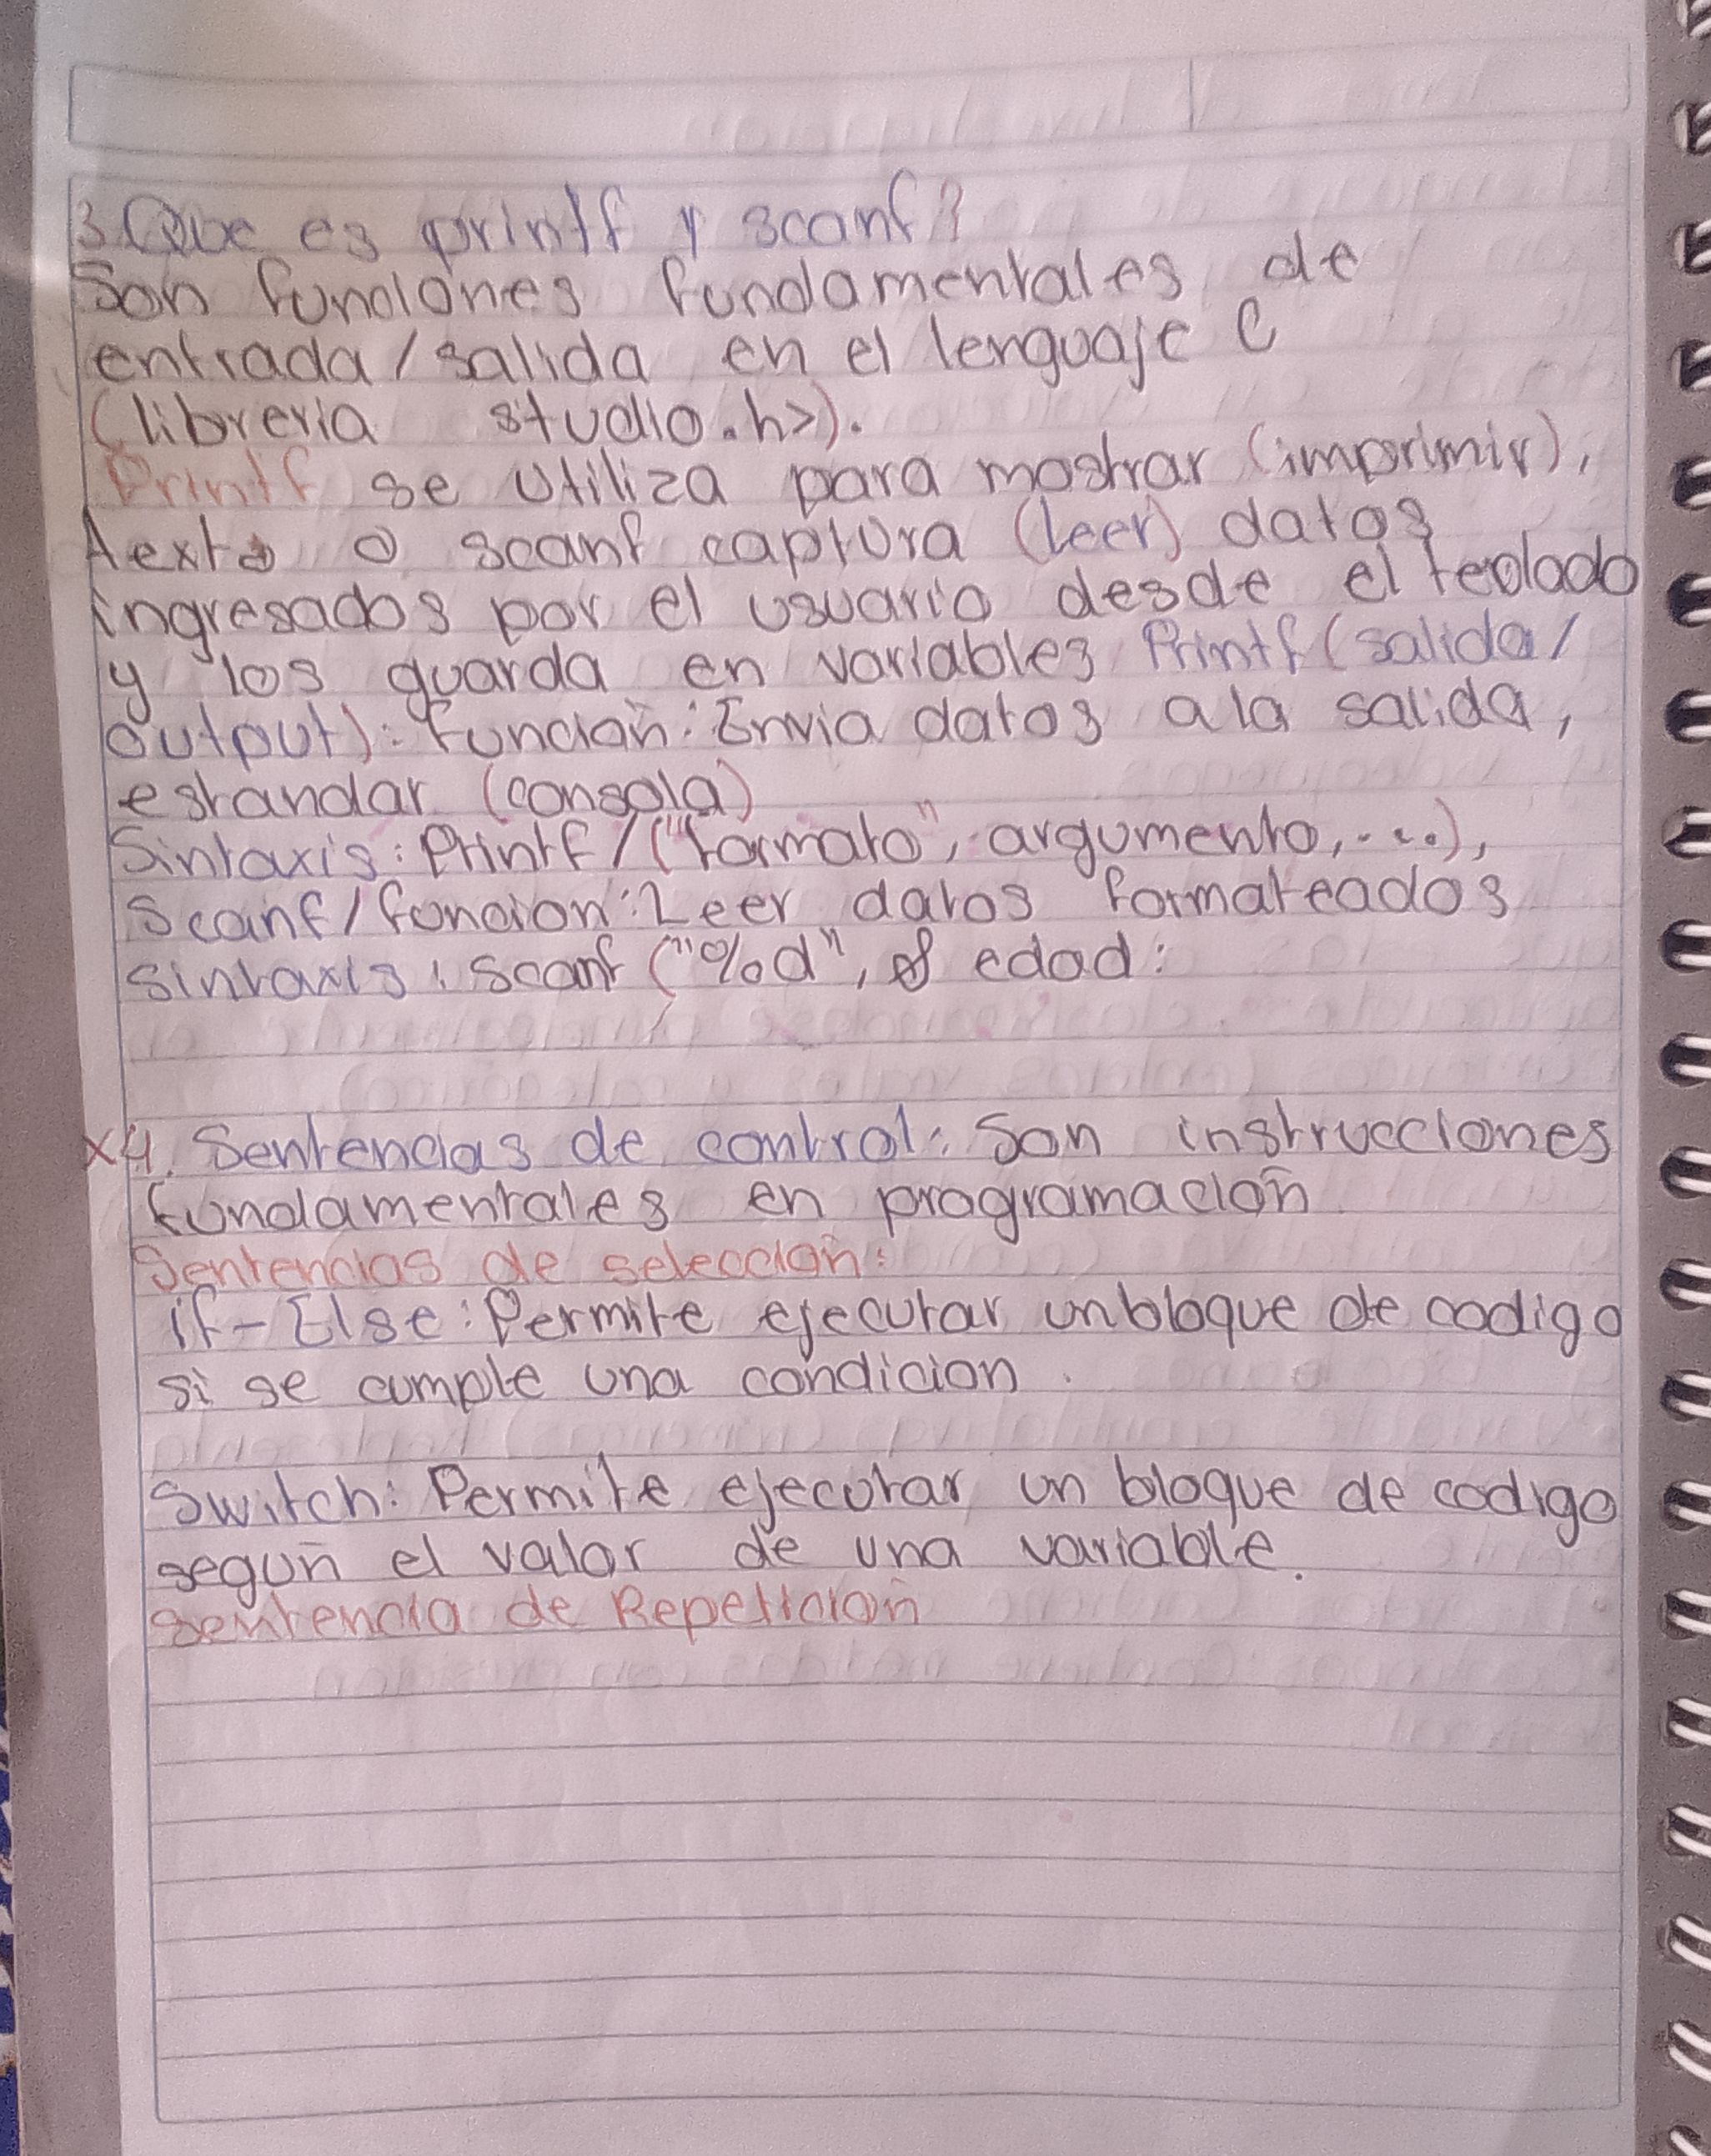 3. Que es printf y scanf?
Son funciones fundamentales de
entrada/salida en el lenguaje C
(libreria studio.h>).
Printf se utiliza para mostrar (imprimir),
texto o scanf captura (leer) datos
ingresados por el usuario desde el teclado
y los guarda en variables Printf (salida/
output): función: Envia datos a la salida,
estandar (consola)
Sintaxis: Printf/("formato", argumento,...),
Scanf/funcion: Leer datos formateados
sintaxis: Scanf ("%d", & edad:
x4. Sentencias de control: Son instrucciones
fundamentales en programación
Sentencias de selección:
if-Else: Permite ejecutar un bloque de codigo
si se cumple una condicion.
Switch: Permite ejecutar un bloque de codigo
según el valor de una variable.
Sentencia de Repetición